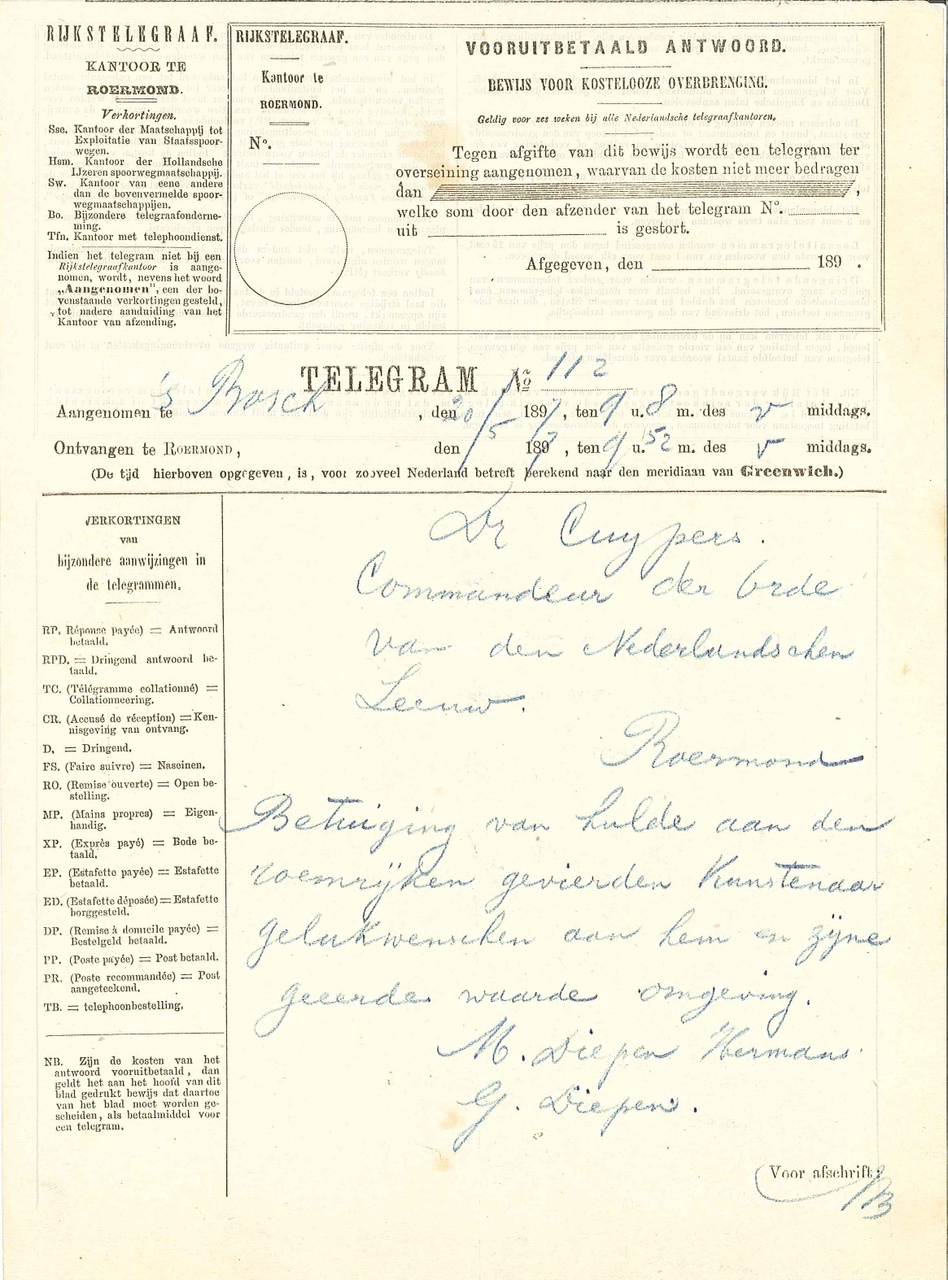 RIJKSTELEGRAAF.
KANTOOR TE
ROERMOND.
Verkortingen.
Sse. Kantoor der Maatschappij tot
Exploitatie van Staatsspoor-
wegen.
Hsm. Kantoor der Hollandsche
IJzeren spoorwegmaatschappij.
Sw. Kantoor van eene andere
dan de bovenvermelde spoor-
wegmaatschappijen.
Bo. Bijzondere telegraafonderne-
ming.
Tfn. Kantoor met telephoondienst.
Indien het telegram niet bij een
Rijkstelegraafkantoor is aange-
nomen, wordt, nevens het woord
„Aangenomen", een der bo-
venstaande verkortingen gesteld,
tot nadere aanduiding van het
Kantoor van afzending.
RIJKSTELEGRAAF.
Kantoor te
ROERMOND.
N°.
VOORUITBETAALD ANTWOORD.
BEWIJS VOOR KOSTELOOZE OVERBRENGING.
Geldig voor zes weken bij alle Nederlandsche telegraafkantoren.
Tegen afgifte van dit bewijs wordt een telegram ter
overseining aangenomen, waarvan de kosten niet meer bedragen
dan ,
welke som door den afzender van het telegram N°.
uit is gestort.
Afgegeven, den 189 .
TELEGRAM No 112
Aangenomen te 's Bosch , den 20/5 1897, ten 9 u. 8 m. des v middags.
Ontvangen te ROERMOND, den 1897, ten 9 u. 52 m. des v middags.
(De tijd hierboven opgegeven, is, voor zooveel Nederland betreft berekend naar den meridiaan van Greenwich.)
VERKORTINGEN
van
bijzondere aanwijzingen in
de telegrammen.
RP. Réponse payée) = Antwoord
betaald.
RPD. = Dringend antwoord be-
taald.
TC. (Télégramme collationné) =
Collationneering.
CR. (Accusé de réception) = Ken-
nisgeving van ontvang.
D, = Dringend.
FS. (Faire suivre) = Naseinen.
RO. (Remise ouverte) = Open be-
stelling.
MP. (Mains propres) = Eigen-
handig.
XP. (Exprès payé) = Bode be-
taald.
EP. (Estafette payée) = Estafette
betaald.
ED. (Estafette déposée) = Estafette
borggesteld.
DP. (Remise à domicile payée) =
Bestelgeld betaald.
PP. (Poste payée) = Post betaald.
PR. (Poste recommandée) = Post
aangeteekend.
TB. = telephoonbestelling.
NB. Zijn de kosten van het
antwoord vooruitbetaald, dan
geldt het aan het hoofd van dit
blad gedrukt bewijs dat daartoe
van het blad moet worden ge-
scheiden, als betaalmiddel voor
een telegram.
Dr Cuypers.
Commandeur der Orde
van den Nederlandschen
Leeuw.
Roermond
Betuiging van hulde aan den
roemrijken gevierden Kunstenaar
gelukwenschen aan hem en zijne
geeerde waarde omgeving.
M. Diepen Hermans
G. Diepen.
Voor afschrift: